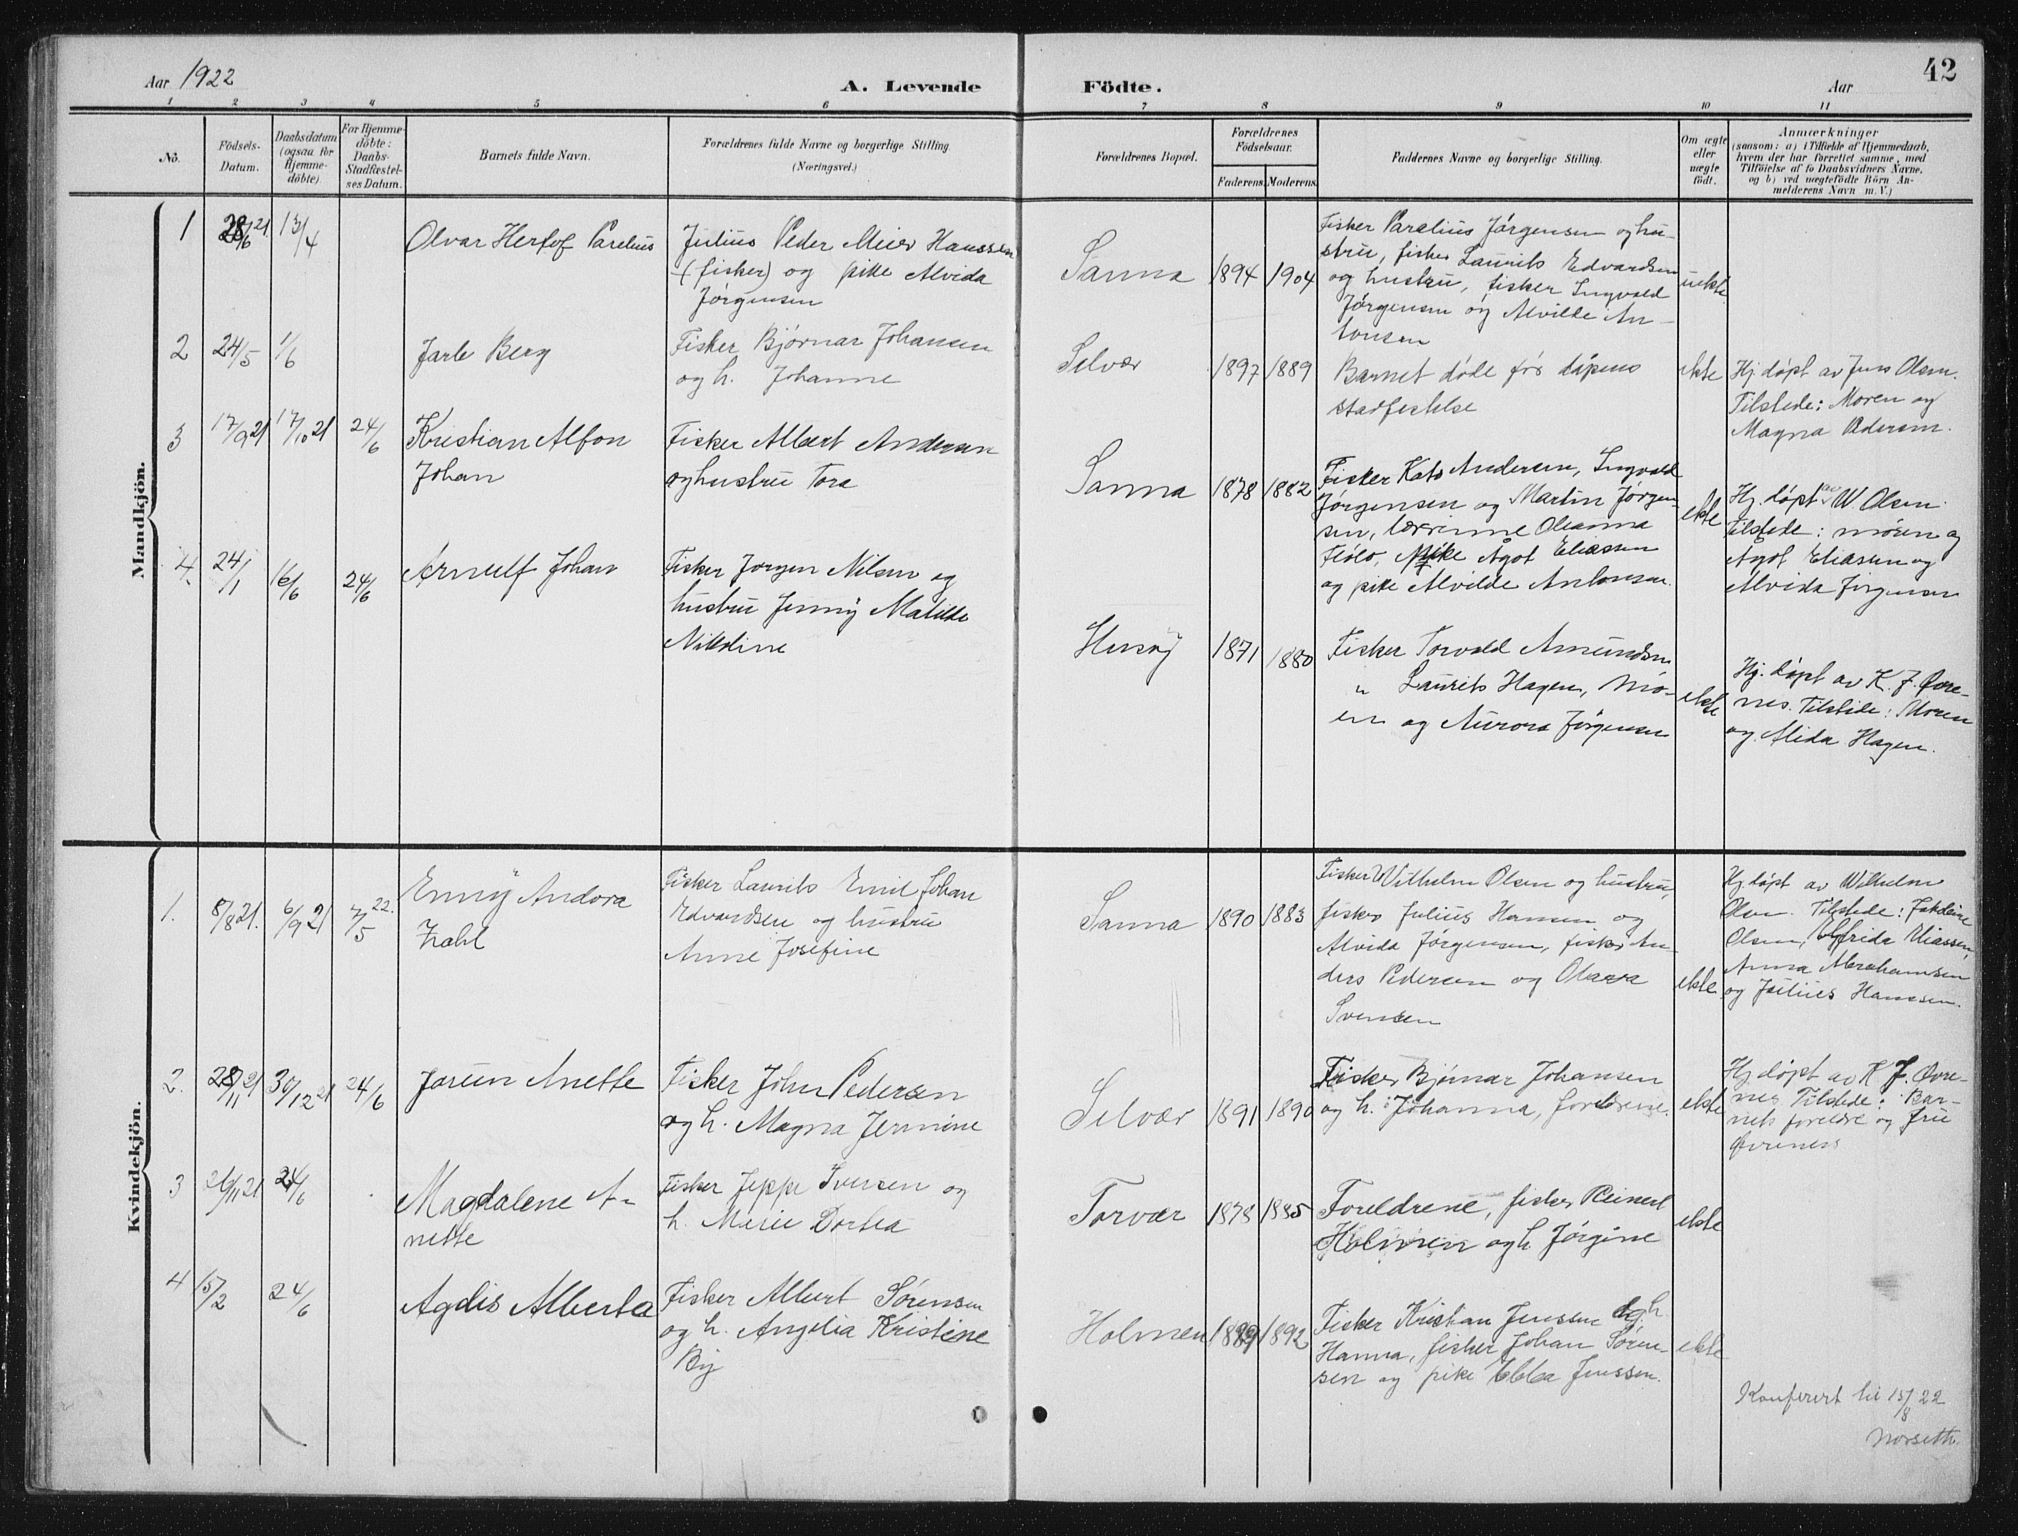 Aar 1922
A. Levende
Födte.
Aar
42
1 2 3 4 5 6 7 8 9 10 11
No.
Födsels-
Datum.
Daabsdatum
(ogsaa for
Hjemme-
döbte).
For Hjemme-
döbte:
Daabs-
Stadfæstel-
ses Datum.
Barnets fulde Navn.
Forældrenes fulde Navne og borgerlige Stilling
(Næringsvei.)
Forældrenes Bopæl.
Forældrenes
Födselsaar.
Faderens. Moderens.
Faddernes Navne og borgerlige Stilling.
Om ægte
eller
uægte
födt.
Anmærkninger
(saasom: a) i Tilfælde af Hjemmedaab,
hvem der har forrettet samme, med
Tilföielse af to Daabsvidners Navne,
og b) ved uægtefödte Börn An-
melderens Navn m. V.)
Mandkjön.
1 28/6 21 13/4
Olvar Hertof Parelius
Julius Peder Meier Hanssen
(fisker) og pike Alvida
Jørgensen
Sanna 1894 1904
Fisker Parelius Jørgensen og hu-
stru, fisker Laurits Edvardsen
og hustru, fisker Ingvald
Jørgensen og Alvilde An-
tonsen
uekte
2 24/5 1/6
Jarle Berg
Fisker Bjørnar Johansen
og h. Johanne
Selvær 1897 1889
Barnet døde før dåpens
stadfestelse
ekte
Hj. døpt av Jens Olsen.
Tilstede: Moren og
Magna Pedersen.
3 17/9 21 17/10 21 24/6
Kristian Alfon
Johan
Fisker Albert Andersen
og hustru Tora
Sanna 1878 1882
Fisker Kato Andersen, Ingvald
Jørgensen og Martin Jørgen-
sen, lærerinne Oleanna
Fiolo, pike Ågot Eliassen
og pike Alvilde Antonsen.
ekte
Hj. døpt av W. Olsen.
Tilstede: moren og
Ågot Eliasen og
Alvida Jørgensen
4. 24/1 16/6 24/6
Arnulf Johan
Fisker Jørgen Nilsen og
hustru Jenny Matilde
Nikoline
Husøy 1871 1880
Fisker Torvald Amundsen
" Laurits Hagen, Mo-
ren og Aurora Jørgensen
ekte
Hj. døpt av K. J. Øvre-
nes. Tilstede: Moren
og Alida Hagen.
Kvindekjön.
1. 8/8 21. 6/9 21 7/5 22.
Enny Andora
Zahl
Fisker Laurits Emil Johan
Edvardsen og hustru
Anne Josefine
Sanna 1890 1883
Fisker Wilhelm Olsen og hustru,
fisker Julius Hansen og
Alvida Jørgensen, fisker An-
ders Pedersen og Olava
Svensen
ekte
Hj. døpt av Wilhelm
Olsen. Tilstede: Jakobine
Olsen, Elfrida Eliassen,
Anna Abrahamsen
og Julius Hanssen.
2. 28/11 21 30/12 21 24/6
Jorun Anette
Fisker John Pedersen
og h. Magna Jermine
Selvær 1891 1890
Fisker Bjørnar Johansen
og h. Johanna, foreldrene.
ekte
Hj. døpt av K. J. Øvre-
nes Tilstede: Bar-
nets foreldre og fru
Øvreness
3 26/11 21 24/6
Magdalene A-
nette
Fisker Jeppe Iversen og
h. Marie Dortea
Torvær 1878 1885
Foreldrene, fisker Reinert
Holmen og h Jørgine
ekte
4 15/2 24/6
Agdis Alberta
Fisker Albert Sørensen
og h. Angelia Kristine
By
Holmen 1889 1892
Fisker Kristian Jenssen og h.
Hanna, fisker Johan Søren-
sen og pike Ebba Jenssen.
ekte
Konferert til 15/8 22
Norseth.